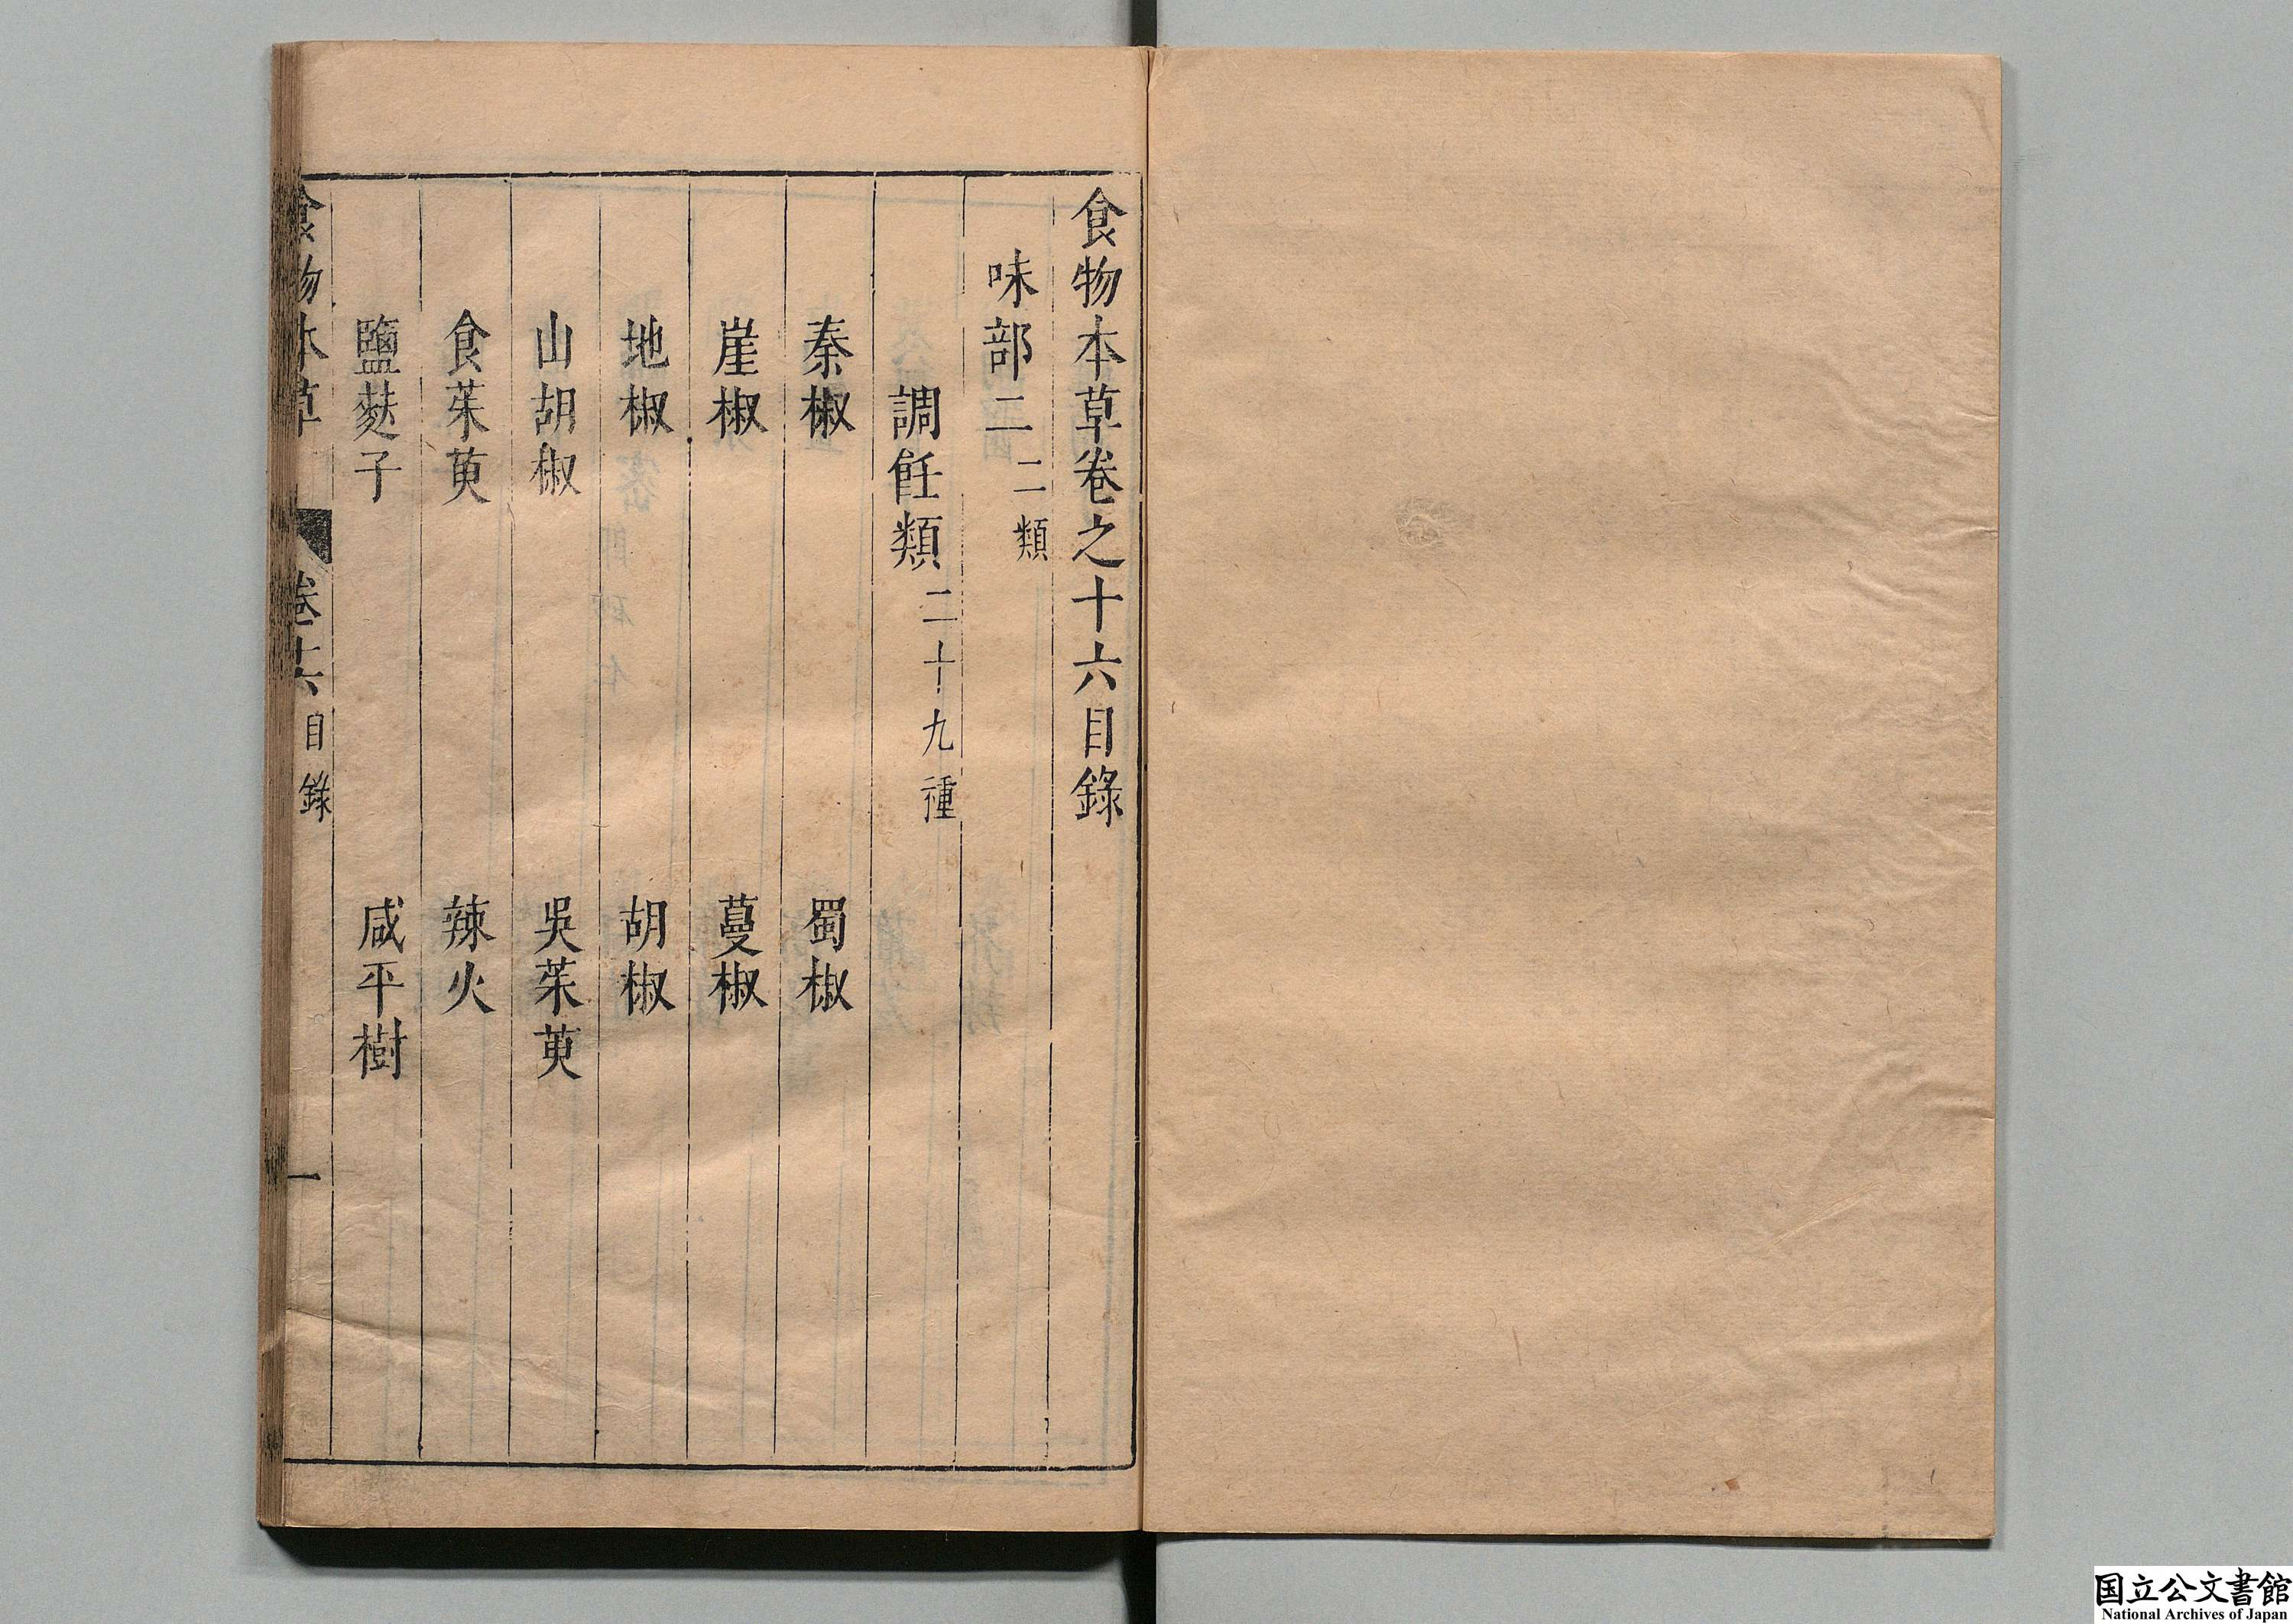 食物本草卷之十六目錄
味部二 二類
調飪類 二十九種
秦椒 蜀椒
崖椒 蔓椒
地椒 胡椒
山胡椒 吳茱萸
食茱萸 辣火
鹽麩子 咸平樹
食物本草 卷十六 目錄 一
国立公文書館
National Archives of Japan